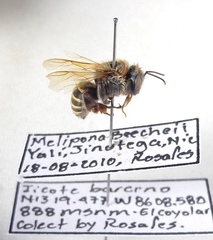 Melipona Beecheii
Yali, Jinotega, Nic
18-08-2010, Rosales
Jicote barcino
N13 19.477 W 86 08.580
888 msnm - El coyolar
Colect by Rosales.